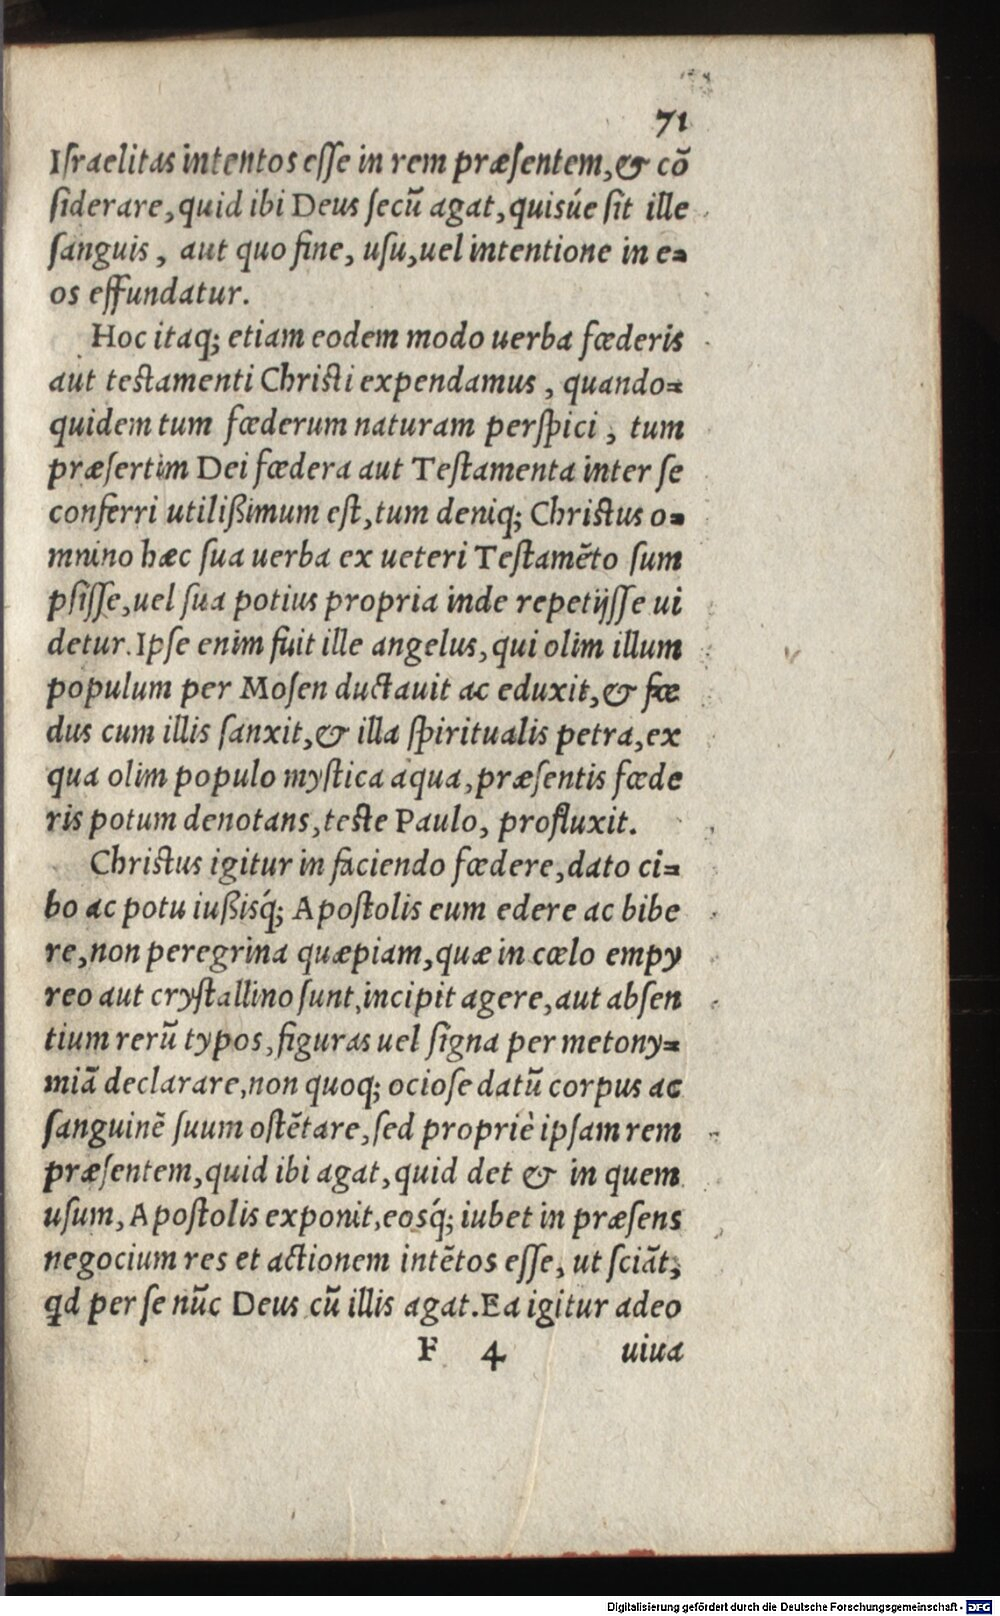 71
Iſraelitas intentos eſſe in rem præſentem, & cõ
ſiderare, quid ibi Deus ſecũ agat, quisúe ſit ille
ſanguis, aut quo fine, uſu, uel intentione in e=
os effundatur.
Hoc itaq; etiam eodem modo uerba fœderis
aut teſtamenti Chriſti expendamus, quando=
quidem tum fœderum naturam perſpici, tum
præſertim Dei fœdera aut Teſtamenta inter ſe
conferri utilißimum eſt, tum deniq; Chriſtus o=
mnino hæc ſua uerba ex ueteri Teſtamẽto ſum
pſiſſe, uel ſua potius propria inde repetijſſe ui
detur. Ipſe enim fuit ille angelus, qui olim illum
populum per Moſen ductauit ac eduxit, & fœ
dus cum illis ſanxit, & illa ſpiritualis petra, ex
qua olim populo myſtica aqua, præſentis fœde
ris potum denotans, teſte Paulo, profluxit.
Chriſtus igitur in faciendo fœdere, dato ci=
bo ac potu iußisq́; Apoſtolis eum edere ac bibe
re, non peregrina quæpiam, quæ in cœlo empy
reo aut cryſtallino ſunt, incipit agere, aut abſen
tium rerũ typos, figuras uel ſigna per metony=
miã declarare, non quoq; ocioſe datũ corpus ac
ſanguinẽ ſuum oſtẽtare, ſed propriè ipſam rem
præſentem, quid ibi agat, quid det & in quem
uſum, Apoſtolis exponit, eosq́; iubet in præſens
negocium res et actionem intẽtos eſſe, ut ſciãt,
qd per ſe nũc Deus cũ illis agat. Ea igitur adeo
F 4 uiua
Digitalisierung gefördert durch die Deutsche Forschungsgemeinschaft - DFG